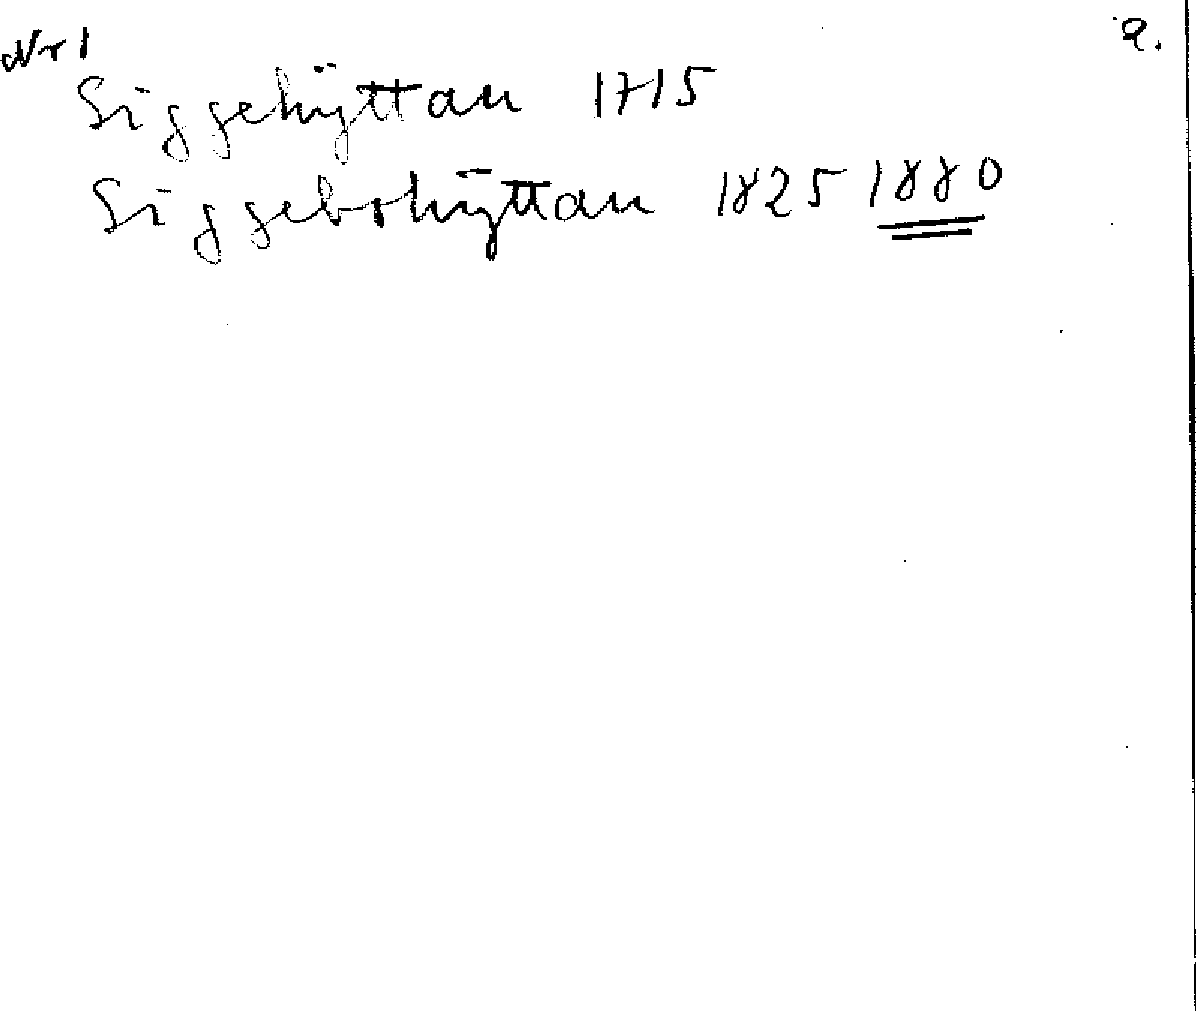 Nr 1
a.
Siggehÿttan 1715
Siggebohÿttan 1825 1880